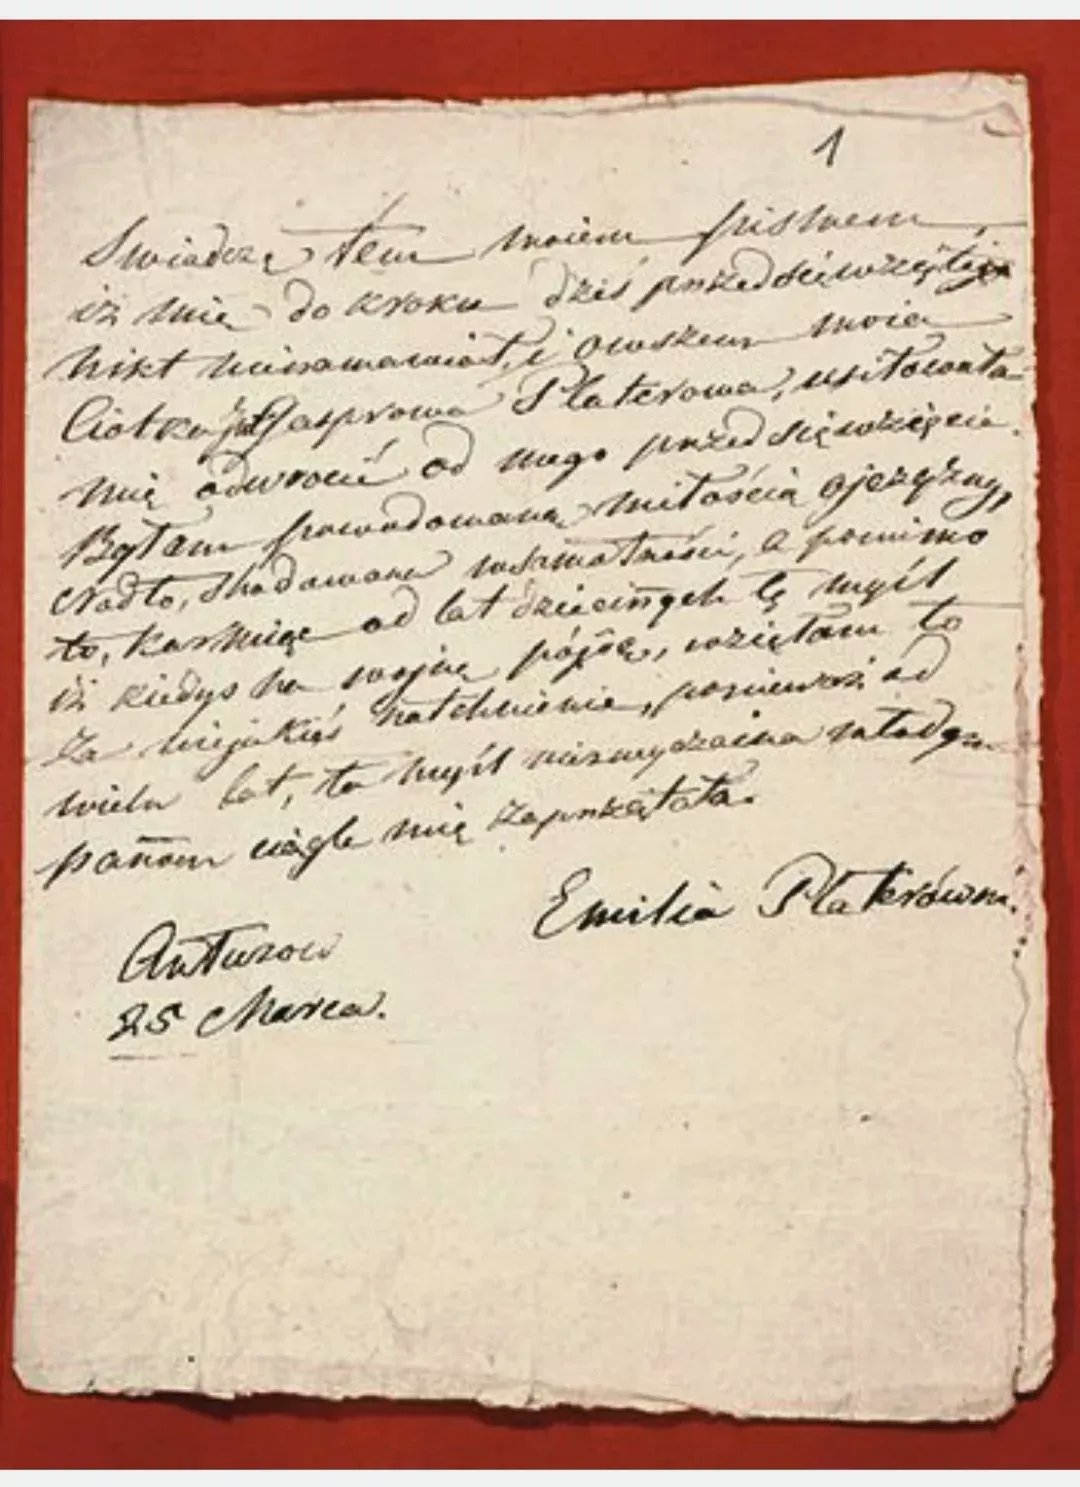 1
Swiadczę tem moiem pismem,
iż mię do kroku dziś przedsięwziętego
nikt nienamawiał, i owszem moia
Ciotka Gasprowa Platerowa, usiłowała
mię odwrocić od mego przedsięwzięcia.
Byłam powodowaną miłością ojczyzny,
Nadto, w a pomimo
to, karmiąc od lat dziecinnych tę myśl
iż kiedyś na wojnę pójdę, wzięłam to
za niejakieś natchnienie, ponieważ od
wielu lat, ta myśl niezwyczaina młodym
pannom ciągle mię zaprzętała.
Emilia Platerówna.
Antuzow
25 Marca.